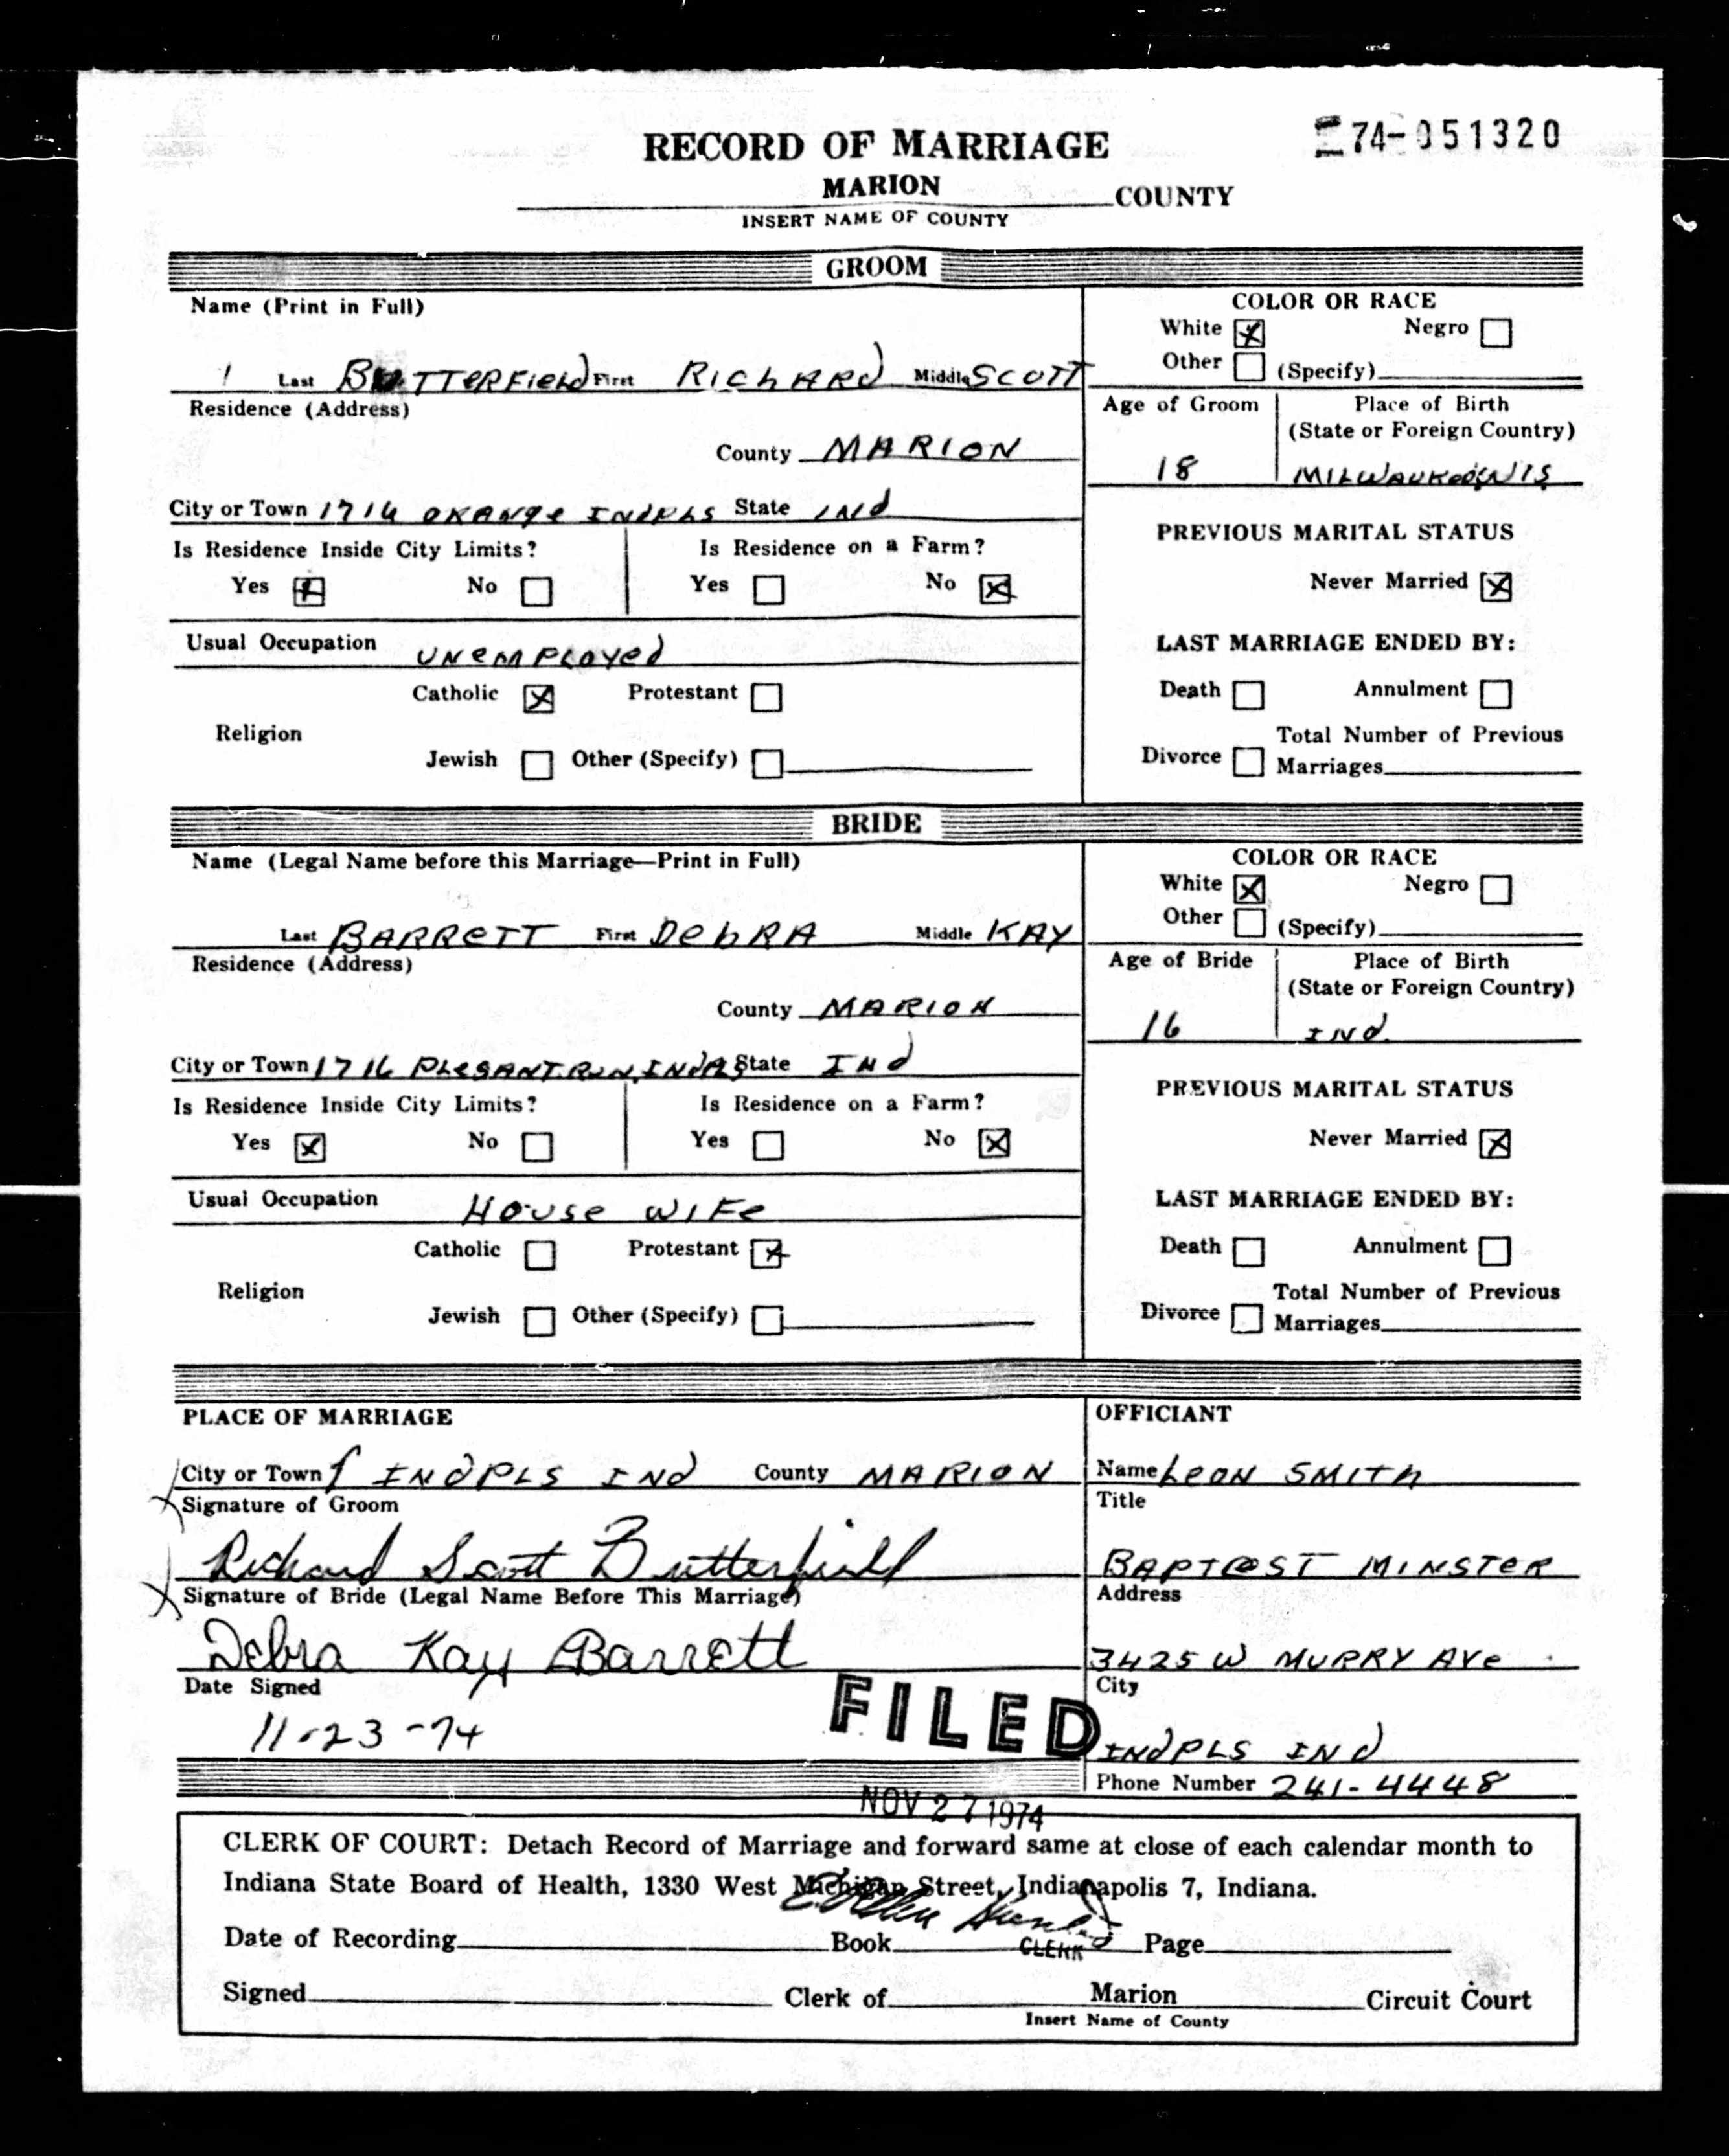 74-051320
RECORD OF MARRIAGE
MARION COUNTY
INSERT NAME OF COUNTY
GROOM
Name (Print in Full)
Last BUTTERFIELD First RICHARD Middle SCOTT
COLOR OR RACE
White ☒ Negro ☐
Other ☐ (Specify)
Residence (Address)
County MARION
Age of Groom
18
Place of Birth
(State or Foreign Country)
MILWAUKEE WIS
City or Town 1716 ORANGE INDPLS State IND
Is Residence Inside City Limits?
Yes ☒ No ☐
Is Residence on a Farm?
Yes ☐ No ☒
PREVIOUS MARITAL STATUS
Never Married ☒
Usual Occupation UNEMPLOYED
LAST MARRIAGE ENDED BY:
Religion
Catholic ☒ Protestant ☐
Jewish ☐ Other (Specify) ☐
Death ☐ Annulment ☐
Divorce ☐ Total Number of Previous
Marriages
BRIDE
Name (Legal Name before this Marriage—Print in Full)
Last BARRETT First DEBRA Middle KAY
COLOR OR RACE
White ☒ Negro ☐
Other ☐ (Specify)
Residence (Address)
County MARION
Age of Bride
16
Place of Birth
(State or Foreign Country)
IND.
City or Town 1716 PLESANT RUN, INDPLS State IND
Is Residence Inside City Limits?
Yes ☒ No ☐
Is Residence on a Farm?
Yes ☐ No ☒
PREVIOUS MARITAL STATUS
Never Married ☒
Usual Occupation HOUSE WIFE
LAST MARRIAGE ENDED BY:
Religion
Catholic ☐ Protestant ☒
Jewish ☐ Other (Specify) ☐
Death ☐ Annulment ☐
Divorce ☐ Total Number of Previous
Marriages
PLACE OF MARRIAGE
City or Town INDPLS IND County MARION
Signature of Groom
Richard Scott Butterfield
Signature of Bride (Legal Name Before This Marriage)
Debra Kay Barrett
Date Signed
11-23-74
OFFICIANT
Name LEON SMITH
Title
BAPTIST MINSTER
Address
3425 W MURRY AVE
City
INDPLS IND
Phone Number 241-4448
FILED
NOV 27 1974
CLERK OF COURT: Detach Record of Marriage and forward same at close of each calendar month to
Indiana State Board of Health, 1330 West Michigan Street, Indianapolis 7, Indiana.
Date of Recording Book CLERK Page
Signed Clerk of Marion Circuit Court
Insert Name of County